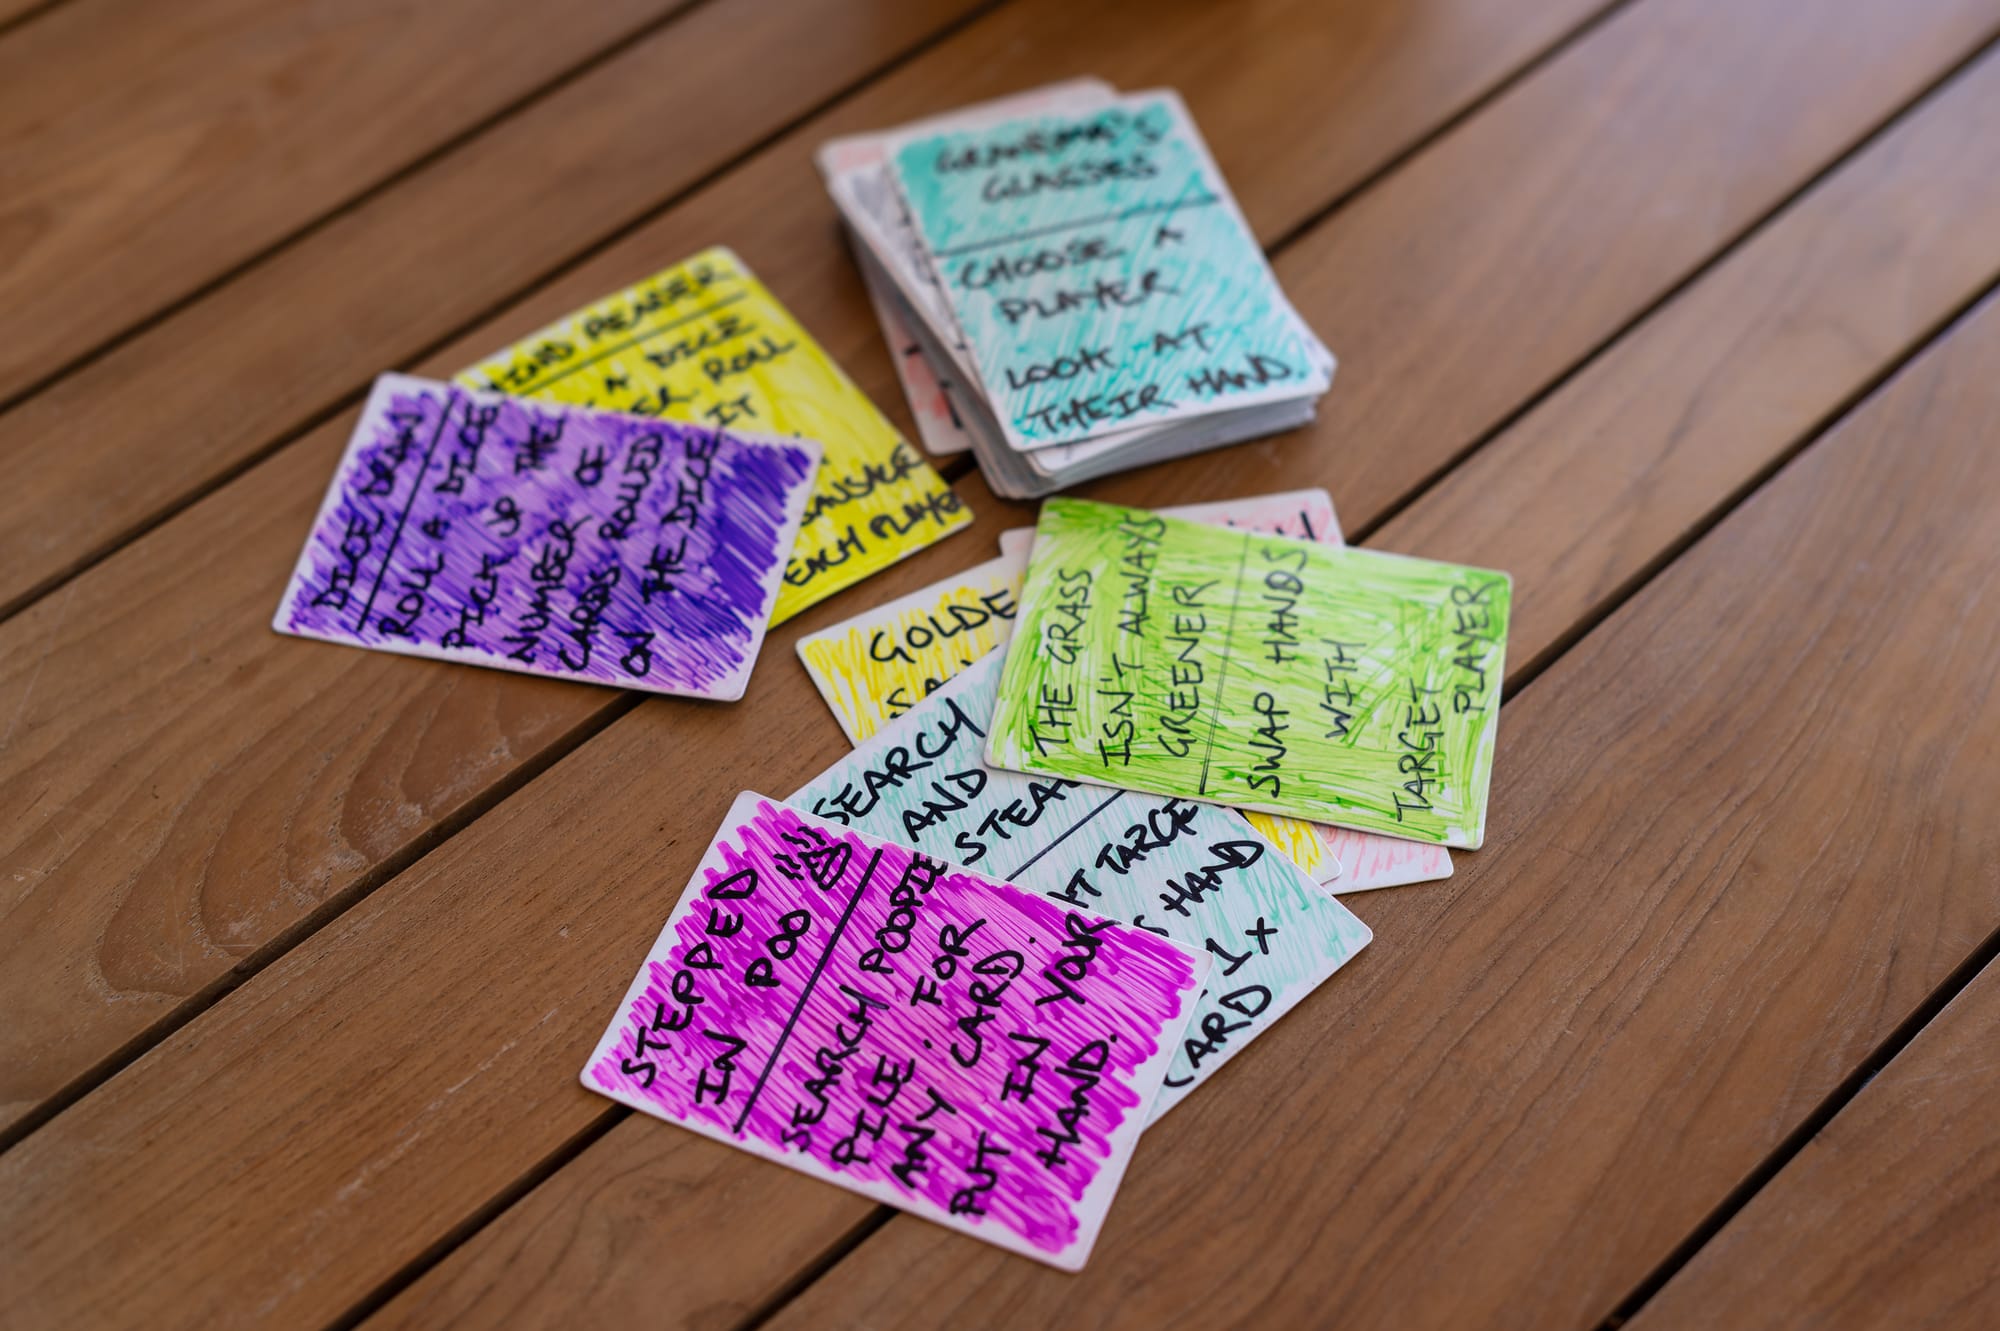 GRANDMA'S
GLASSES
CHOOSE A
PLAYER
LOOK AT
THEIR HAND.
MIND READER
A DICE
ROLL
IT
EACH PLAYER
DICE DRAW
ROLL A DICE
PICK UP THE
NUMBER OF
CARDS ROLLED
ON THE DICE
GOLDE
THE GRASS
ISN'T ALWAYS
GREENER
SWAP HANDS
WITH
TARGET PLAYER
SEARCH
AND
STEAL
AT TARGE
HAND
1x
CARD
STEPPED
IN POO
SEARCH POOPIE
PILE. FOR
ANY CARD.
PUT IN YOUR
HAND.